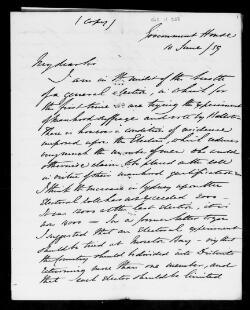 (Copy)
Government House
10 June/59
My dear Sir
I am in the midst of the bustle
of a general election, in which for
the first time we are trying the experiment
of manhood suffrage and vote by Ballot.
There is however a condition of residence
imposed upon the Electors, which reduces
very much the number of men who could
otherwise claim to be placed on the roll
in virtue of their manhood qualification.
I think the increase in Sydney upon the
electoral roll has not exceeded 2000.
It was 12000 at the last election, it is
now 14000 — In a former letter to you
I suggested that an electoral experiment
should be tried at Moreton Bay, — viz that
the country should be divided into Districts
returning more than one member, and
that each elector should be limited